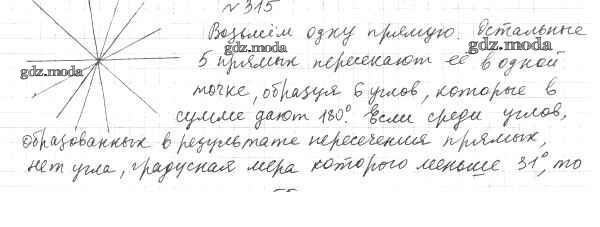 № 315
Возьмём одну прямую. Остальные
gdz.moda
gdz.moda
gdz.moda
5 прямых пересекают её в одной
точке, образуя 6 углов, которые в
сумме дают 180°. Если среди углов,
образованных в результате пересечения прямых,
нет угла, градусная мера которого меньше 31°, то